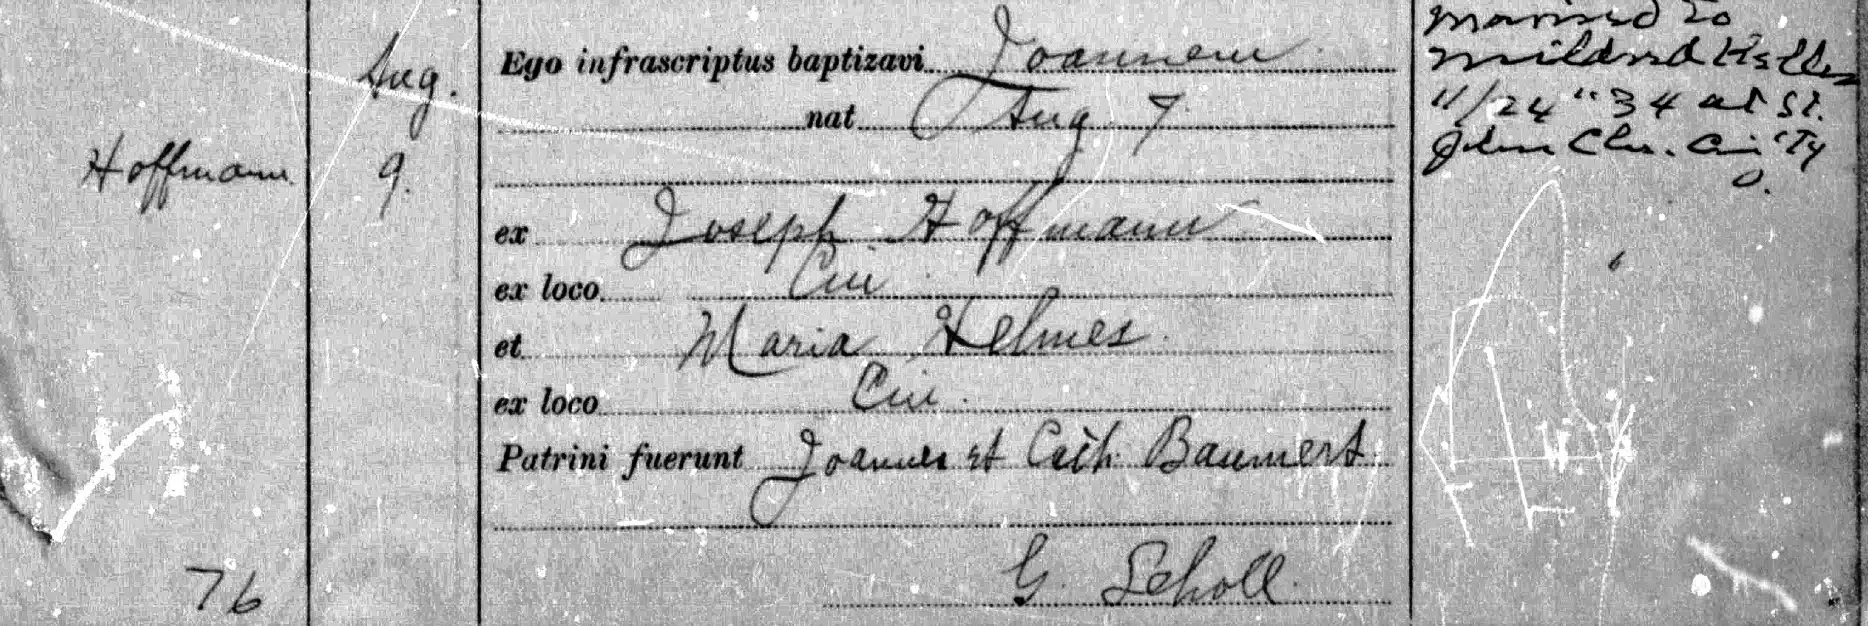 Hoffmann
Aug.
9.
Ego infrascriptus baptizavi Joannem
nat Aug 7
ex Joseph Hoffmann
ex loco Cin
et Maria Helmes
ex loco Cin.
Patrini fuerunt Joannes et Cath Baumert
G. Scholl.
76
married to
Mildred
11/24 "34 at St.
John Chu. Cin'Ty
O.